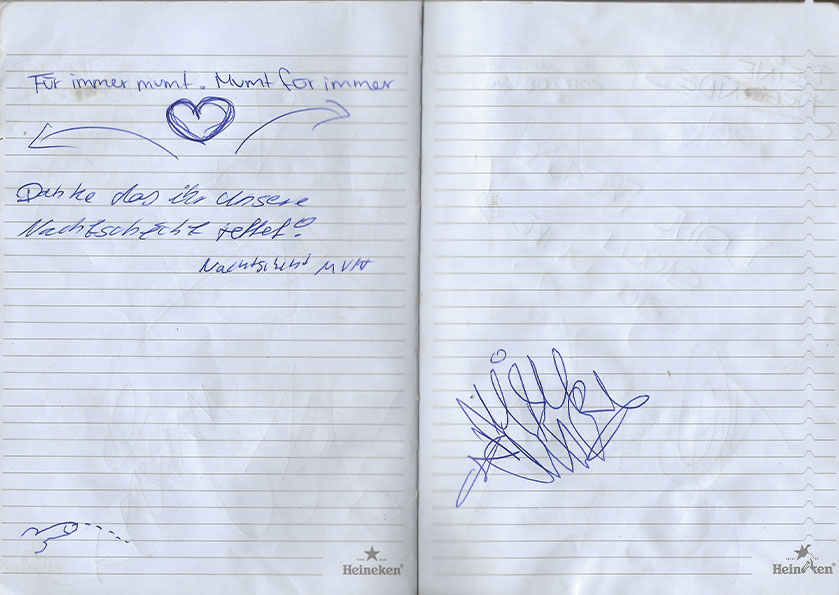 Für immer mvmt. Mvmt für immer
Danke das ihr unsere
Nachtschicht rettet!
Nachtschicht MVM
Heineken
Heineken